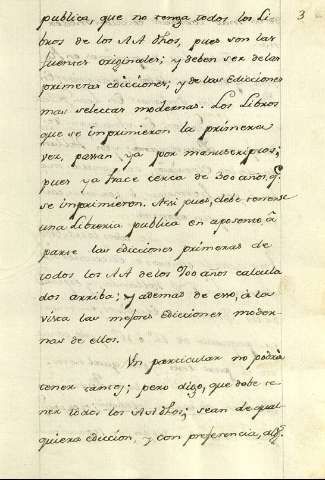 3
publica, que no tenga todos los Li-
bros de los AA dhos, pues son las
fuentes originales; y deben ser de las
primeras edicciones; y de las Edicciones
mas selectas modernas. Los Libros
que se imprimieron la primera
vez, pasan ya por manuscriptos;
pues ya hace cerca de 300 años, q.
se imprimieron. Asi pues, debe tenerse
una Libreria publica en aposento, à
parte las edicciones primeras de
todos los AA de los 700 años calcula
dos arriba; y ademas de esso, à la
vista las mejores Edicciones moder-
nas de ellos.
Un particular no podrà
tener tantos; pero digo, que debe te-
ner todos los AA dhos; sean de qual-
quiera ediccion, y con preferencia,